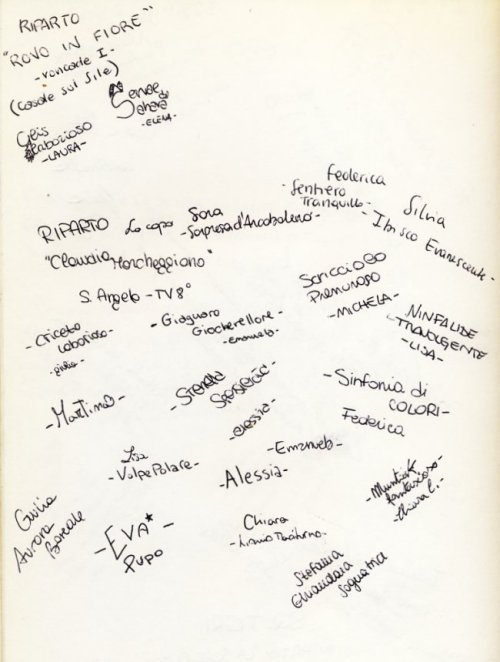 RIPARTO
"ROVO IN FIORE"
- roncade I -
(Casale sul Sile)
Geis
Laborioso
- LAURA -
Cenere di
Sahara
- ELENA -
Federica
Sentiero
Tranquillo -
Silvia
Ibisco Evanescente -
RIPARTO
"Claudia Marcheggiano"
S. Angelo - TV 8°
La capo Sara
- Sorpresa d'Arcobaleno -
Scricciolo
Premuroso
- MICHELA -
NINFALIDE
TRAVOLGENTE
- LISA -
- Criceto
laborioso -
- Giaguaro
Giocherellone -
- emanuela -
- Martina -
- Stella
- alessia -
- Sinfonia di
COLORI -
Federica
- Emanuela -
Lisa
- Volpe Polare -
- Alessia -
- Muntiak
fantasioso -
- Chiara C. -
Giulia
Aurora
Boreale
- EVA* -
Pupo
Chiara
Taciturno -
Stefania
Ghiandaia
Saguatica